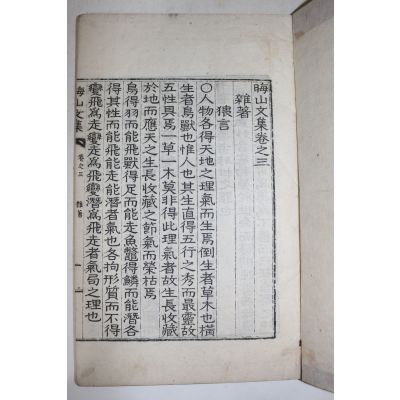 晦山文集卷之三
雜著
猥言
○人物各得天地之理氣而生焉倒生者草木也橫
生者鳥獸也惟人也其生直得五行之秀而最靈故
五性具焉一草一木莫非得此理氣者故生長收藏
於地而應天之生長收藏之節氣而榮枯焉
鳥得羽而能飛獸得足而能走魚鼈得鱗而能潛各
得其性而能飛能走能潛者氣也各拘形質而不得
變飛爲走變潛爲飛變潛爲飛走者氣局之理也
晦山文集 卷之三 雜著 一